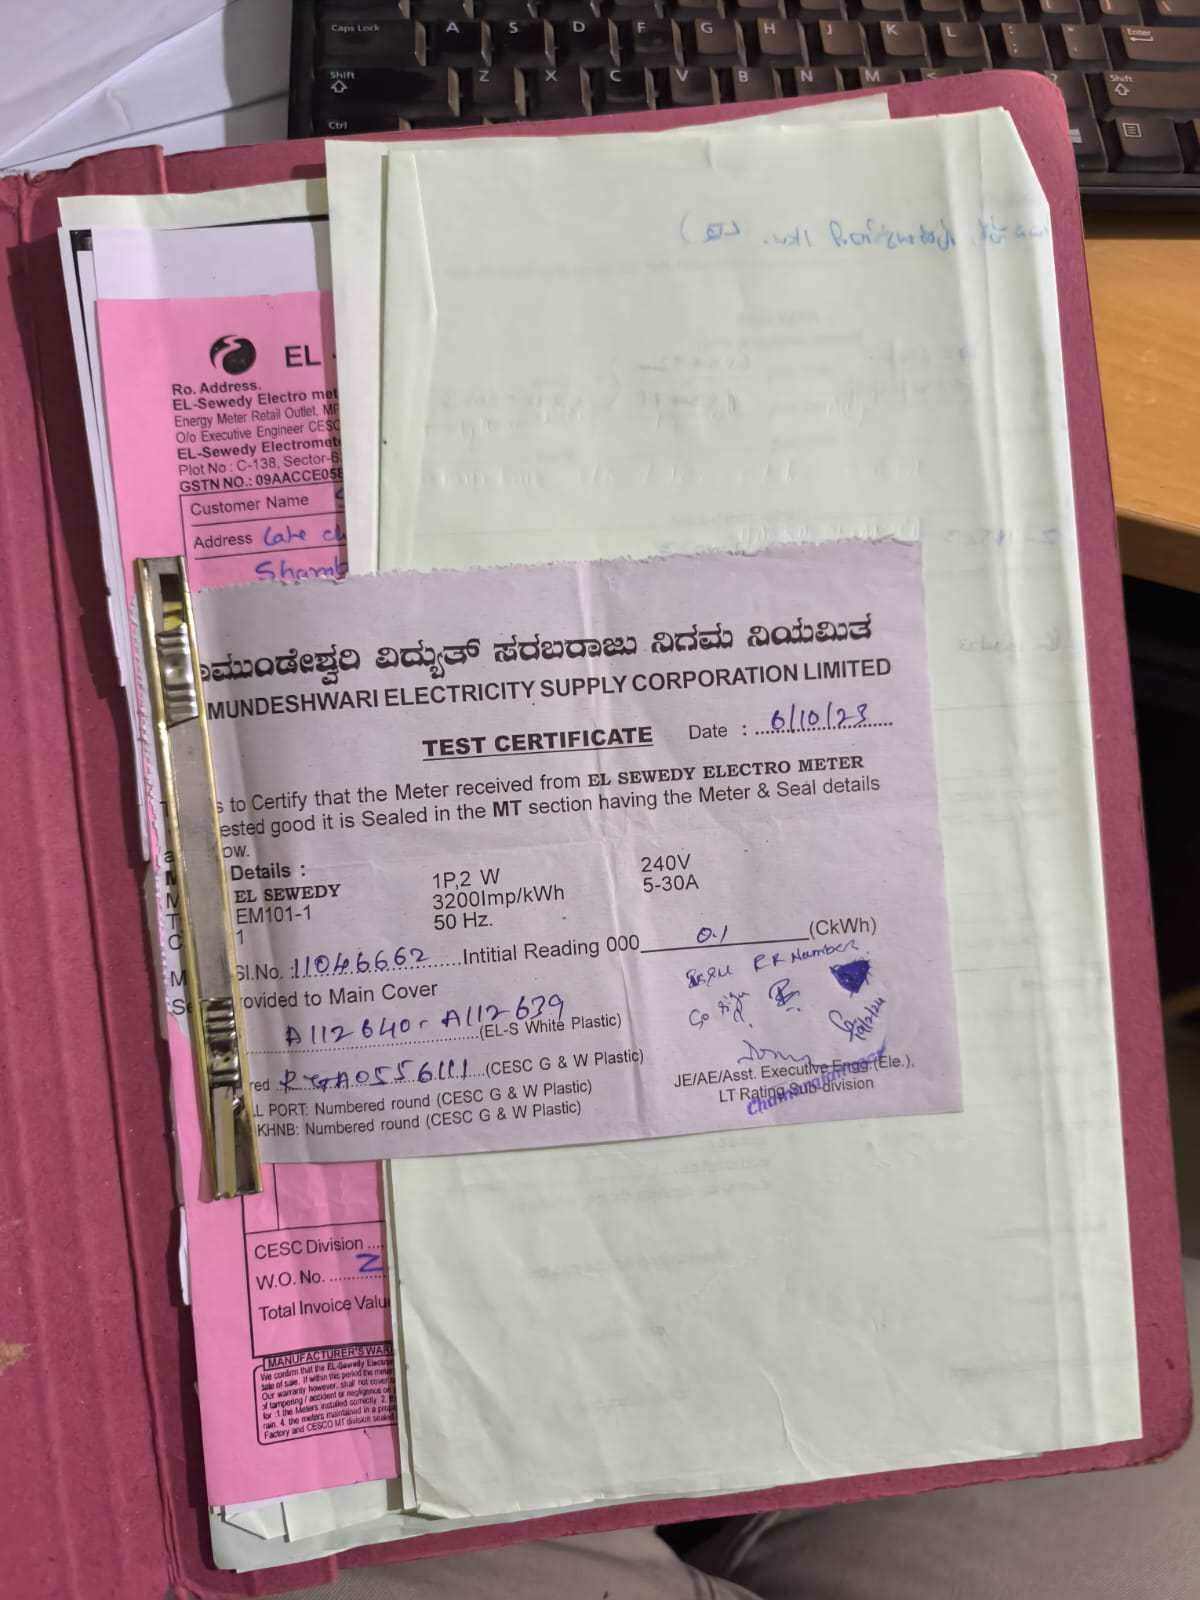 Caps Lock A S D F G H J K L Enter
Shift Z X C V B N M Shift
Ctrl
EL
Ro. Address.
EL-Sewedy Electro met
Energy Meter Retail Outlet, MF
O/o Executive Engineer CESC
EL-Sewedy Electromet
Plot No : C-138, Sector-6
GSTN NO.: 09AACCE058
Customer Name
Address Late ch
Shamb
ಾಮುಂಡೇಶ್ವರಿ ವಿದ್ಯುತ್ ಸರಬರಾಜು ನಿಗಮ ನಿಯಮಿತ
MUNDESHWARI ELECTRICITY SUPPLY CORPORATION LIMITED
TEST CERTIFICATE Date : 6/10/23
s to Certify that the Meter received from EL SEWEDY ELECTRO METER
ested good it is Sealed in the MT section having the Meter & Seal details
ow.
Details :
EL SEWEDY 1P,2 W 240V
EM101-1 3200Imp/kWh 5-30A
1 50 Hz.
Sl.No. : 11046662 Intitial Reading 000 0.1 (CkWh)
RR Number
rovided to Main Cover
A112640 - A112639 (EL-S White Plastic)
red RGA0556111 (CESC G & W Plastic)
L PORT: Numbered round (CESC G & W Plastic)
KHNB: Numbered round (CESC G & W Plastic)
JE/AE/Asst. Executive Engg.(Ele.),
LT Rating Sub-division
CESC Division
W.O. No. Z
Total Invoice Valu
MANUFACTURER'S WAR
We confirm that the EL-Sewedy Electro
date of sale. If within this period the meter
Our warranty however, shall not cover
of tampering / accident or negligence on
for :1.the Meters installed correctly. 2.
rain. 4. the meters maintained in a prop
Factory and CESCO MT division sealed